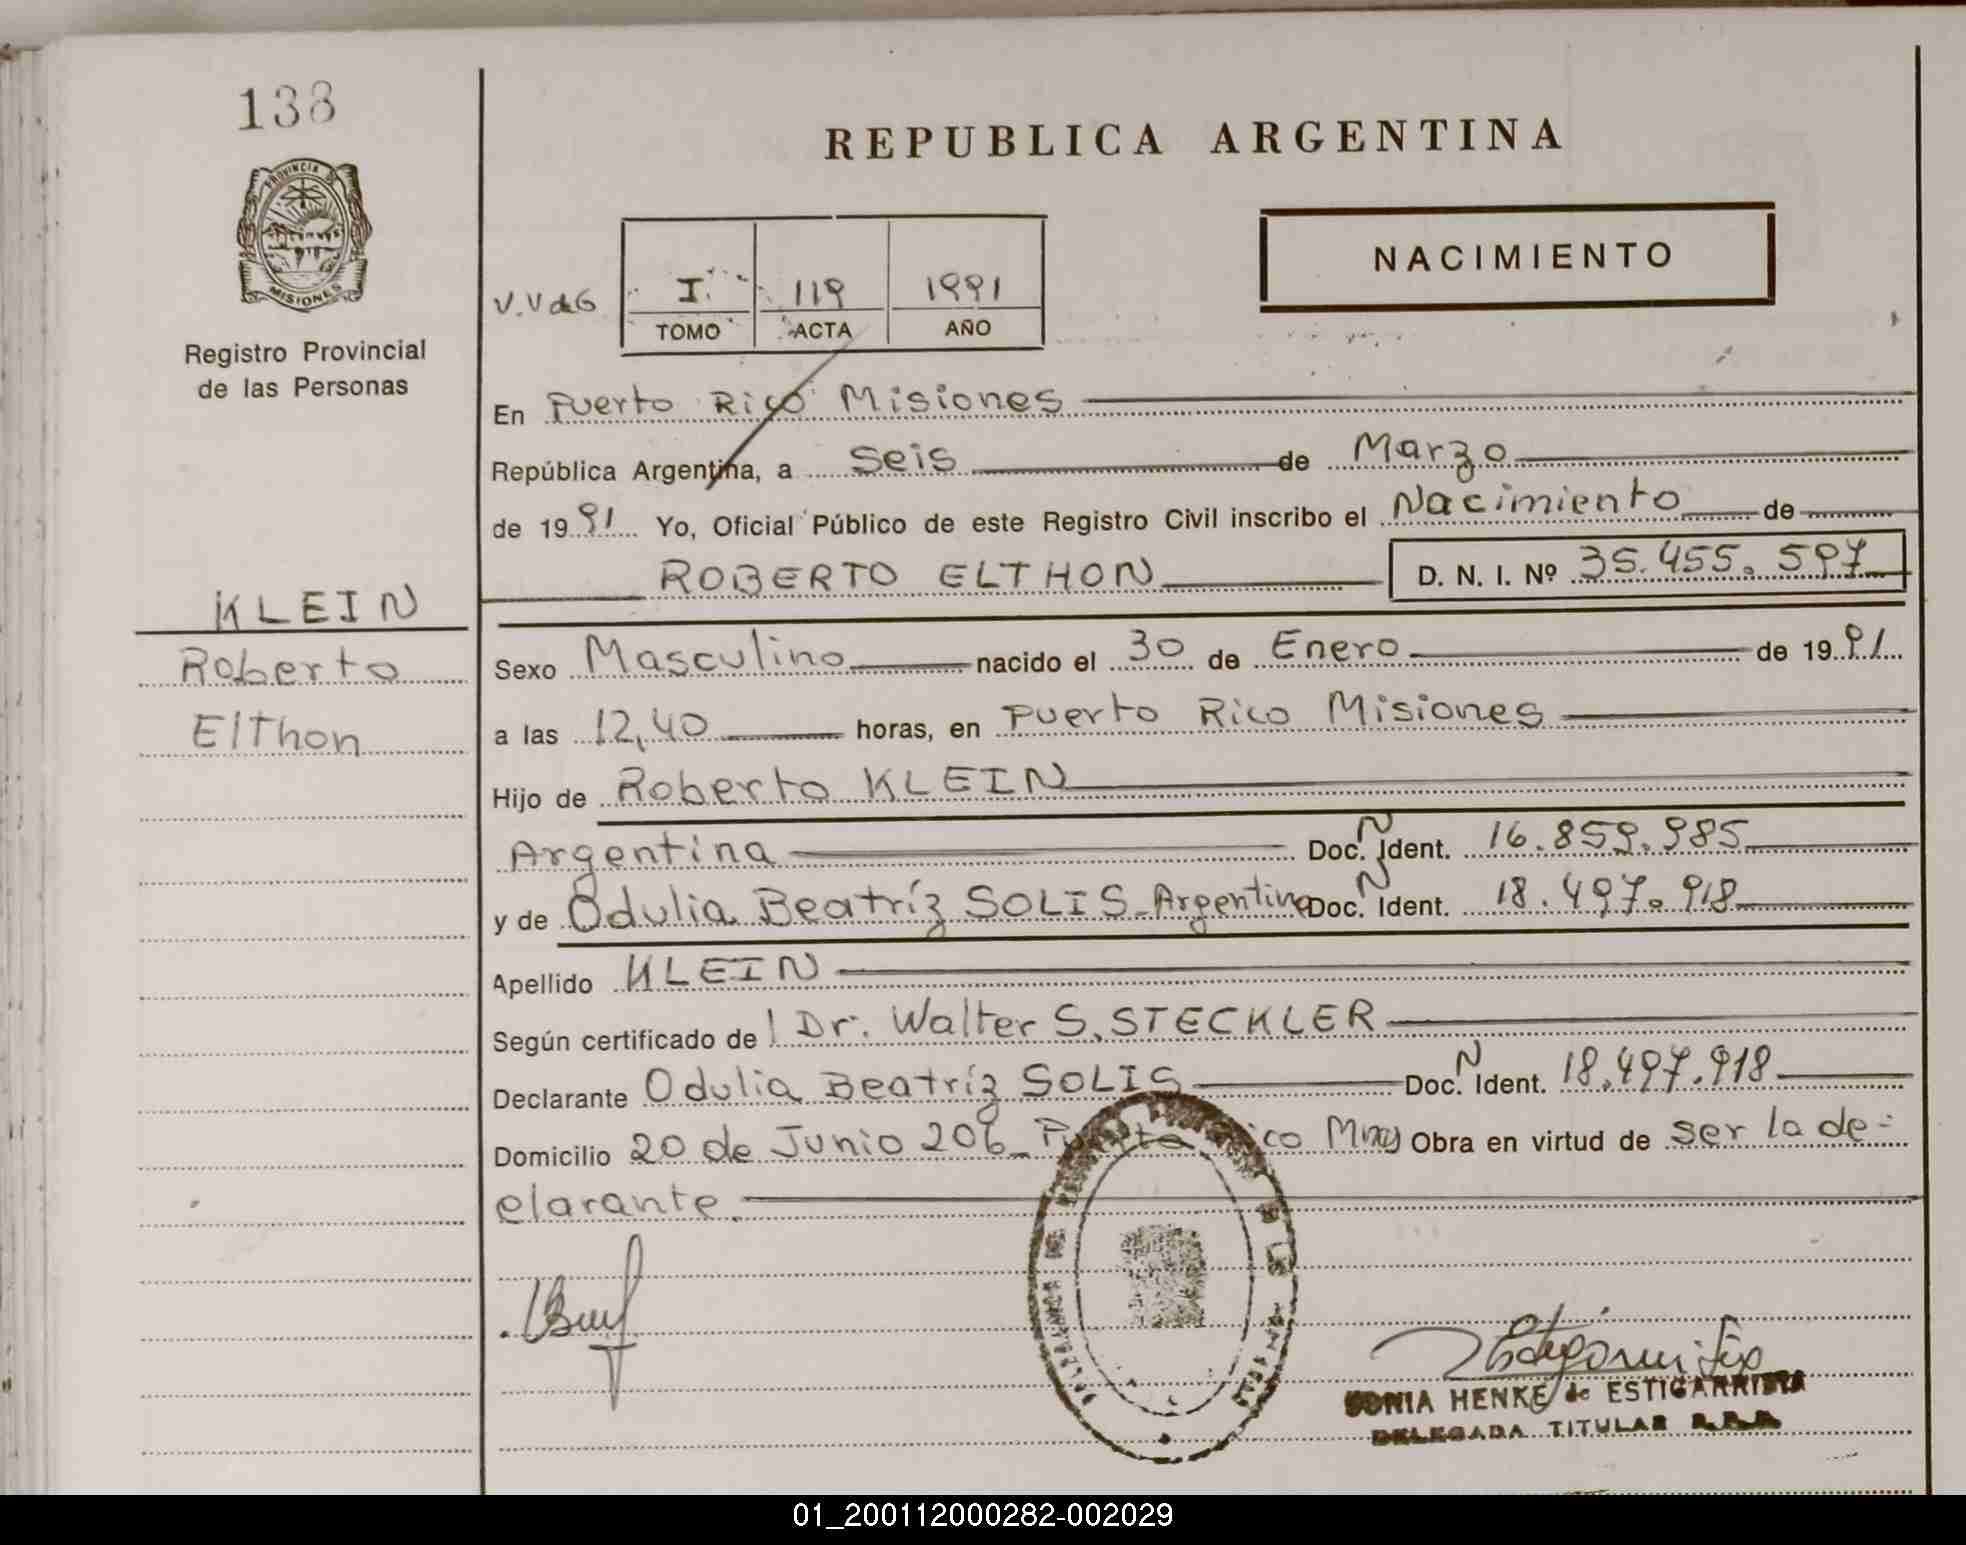 138
REPUBLICA ARGENTINA
PROVINCIA DE
MISIONES
Registro Provincial
de las Personas
V.V de G
I. 119 1991
TOMO ACTA AÑO
NACIMIENTO
En Puerto Rico Misiones
República Argentina, a Seis de Marzo
de 1991 Yo, Oficial Público de este Registro Civil inscribo el Nacimiento de
ROBERTO ELTHON D. N. I. Nº 35.455.597
KLEIN
Roberto
Elthon
Sexo Masculino nacido el 30 de Enero de 1991
a las 12,40 horas, en Puerto Rico Misiones
Hijo de Roberto KLEIN
Argentina Doc. N Ident. 16.859.985
y de Odulia Beatríz SOLIS - Argentina Doc. N Ident. 18.497.918
Apellido KLEIN
Según certificado de l Dr. Walter S. STECKLER
Declarante Odulia Beatríz SOLIS Doc. N Ident. 18.497.918
Domicilio 20 de Junio 206 - Puerto Rico Mnes Obra en virtud de ser la de-
clarante.
SONIA HENKE de ESTIGARRIBIA
DELEGADA TITULAR R.P.P.
01_200112000282-002029